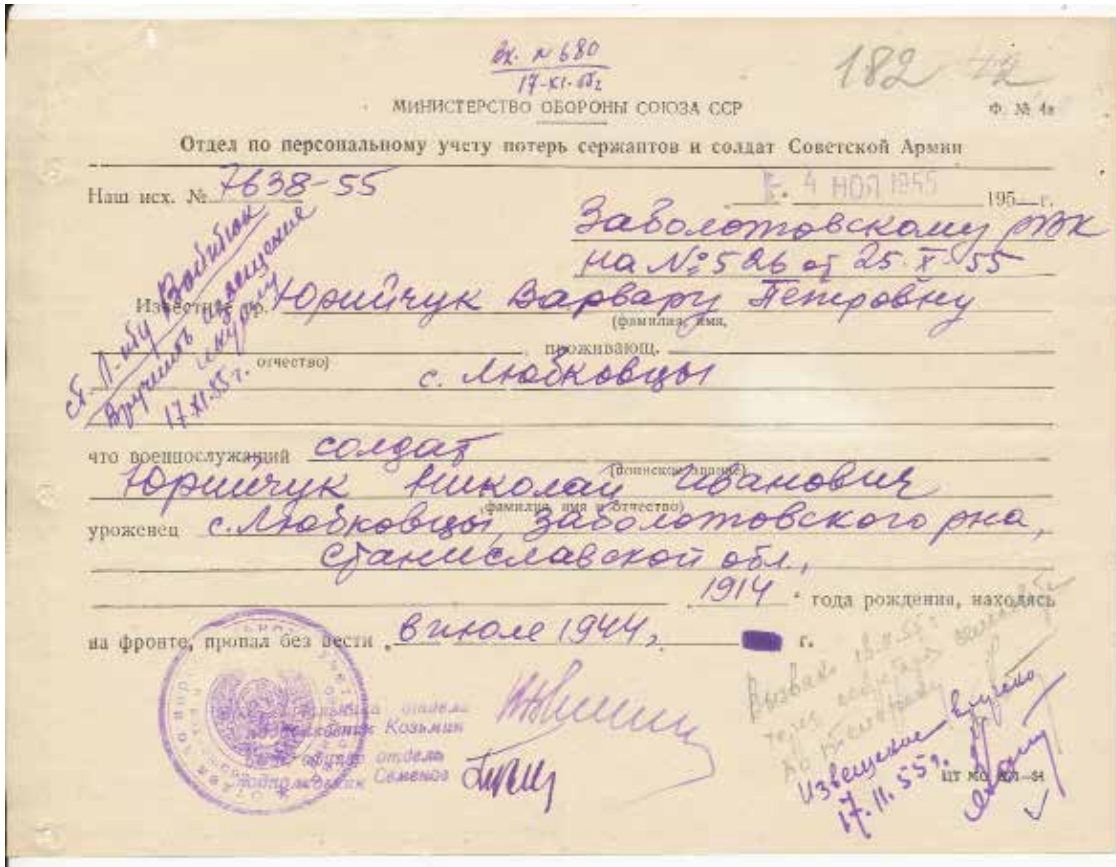 Вх. № 680
17-XI-55г
182 42
МИНИСТЕРСТВО ОБОРОНЫ СОЮЗА ССР
Ф. № 4а
Отдел по персональному учету потерь сержантов и солдат Советской Армии
Наш исх. № 7638-55
4 НОЯ 1955 195 г.
Заболотовскому РВК
на № 526 от 25.X.55
Вручить извещение
17.XI.55г.
Известите гр. Юрийчук Варвару Петровну
(фамилия, имя,
отчество) проживающ.
с. Любковцы
что военнослужащий солдат
(воинское звание)
Юрийчук Николай Иванович
(фамилия, имя и отчество)
уроженец с. Любковцы, Заболотовского рна,
Станиславской обл.,
1914 года рождения, находясь
на фронте, пропал без вести в июле 1944, г.
отдела
подполковник Козьмин
отдела
подполковник Семенов
Извещение вручено
17.11.55г.